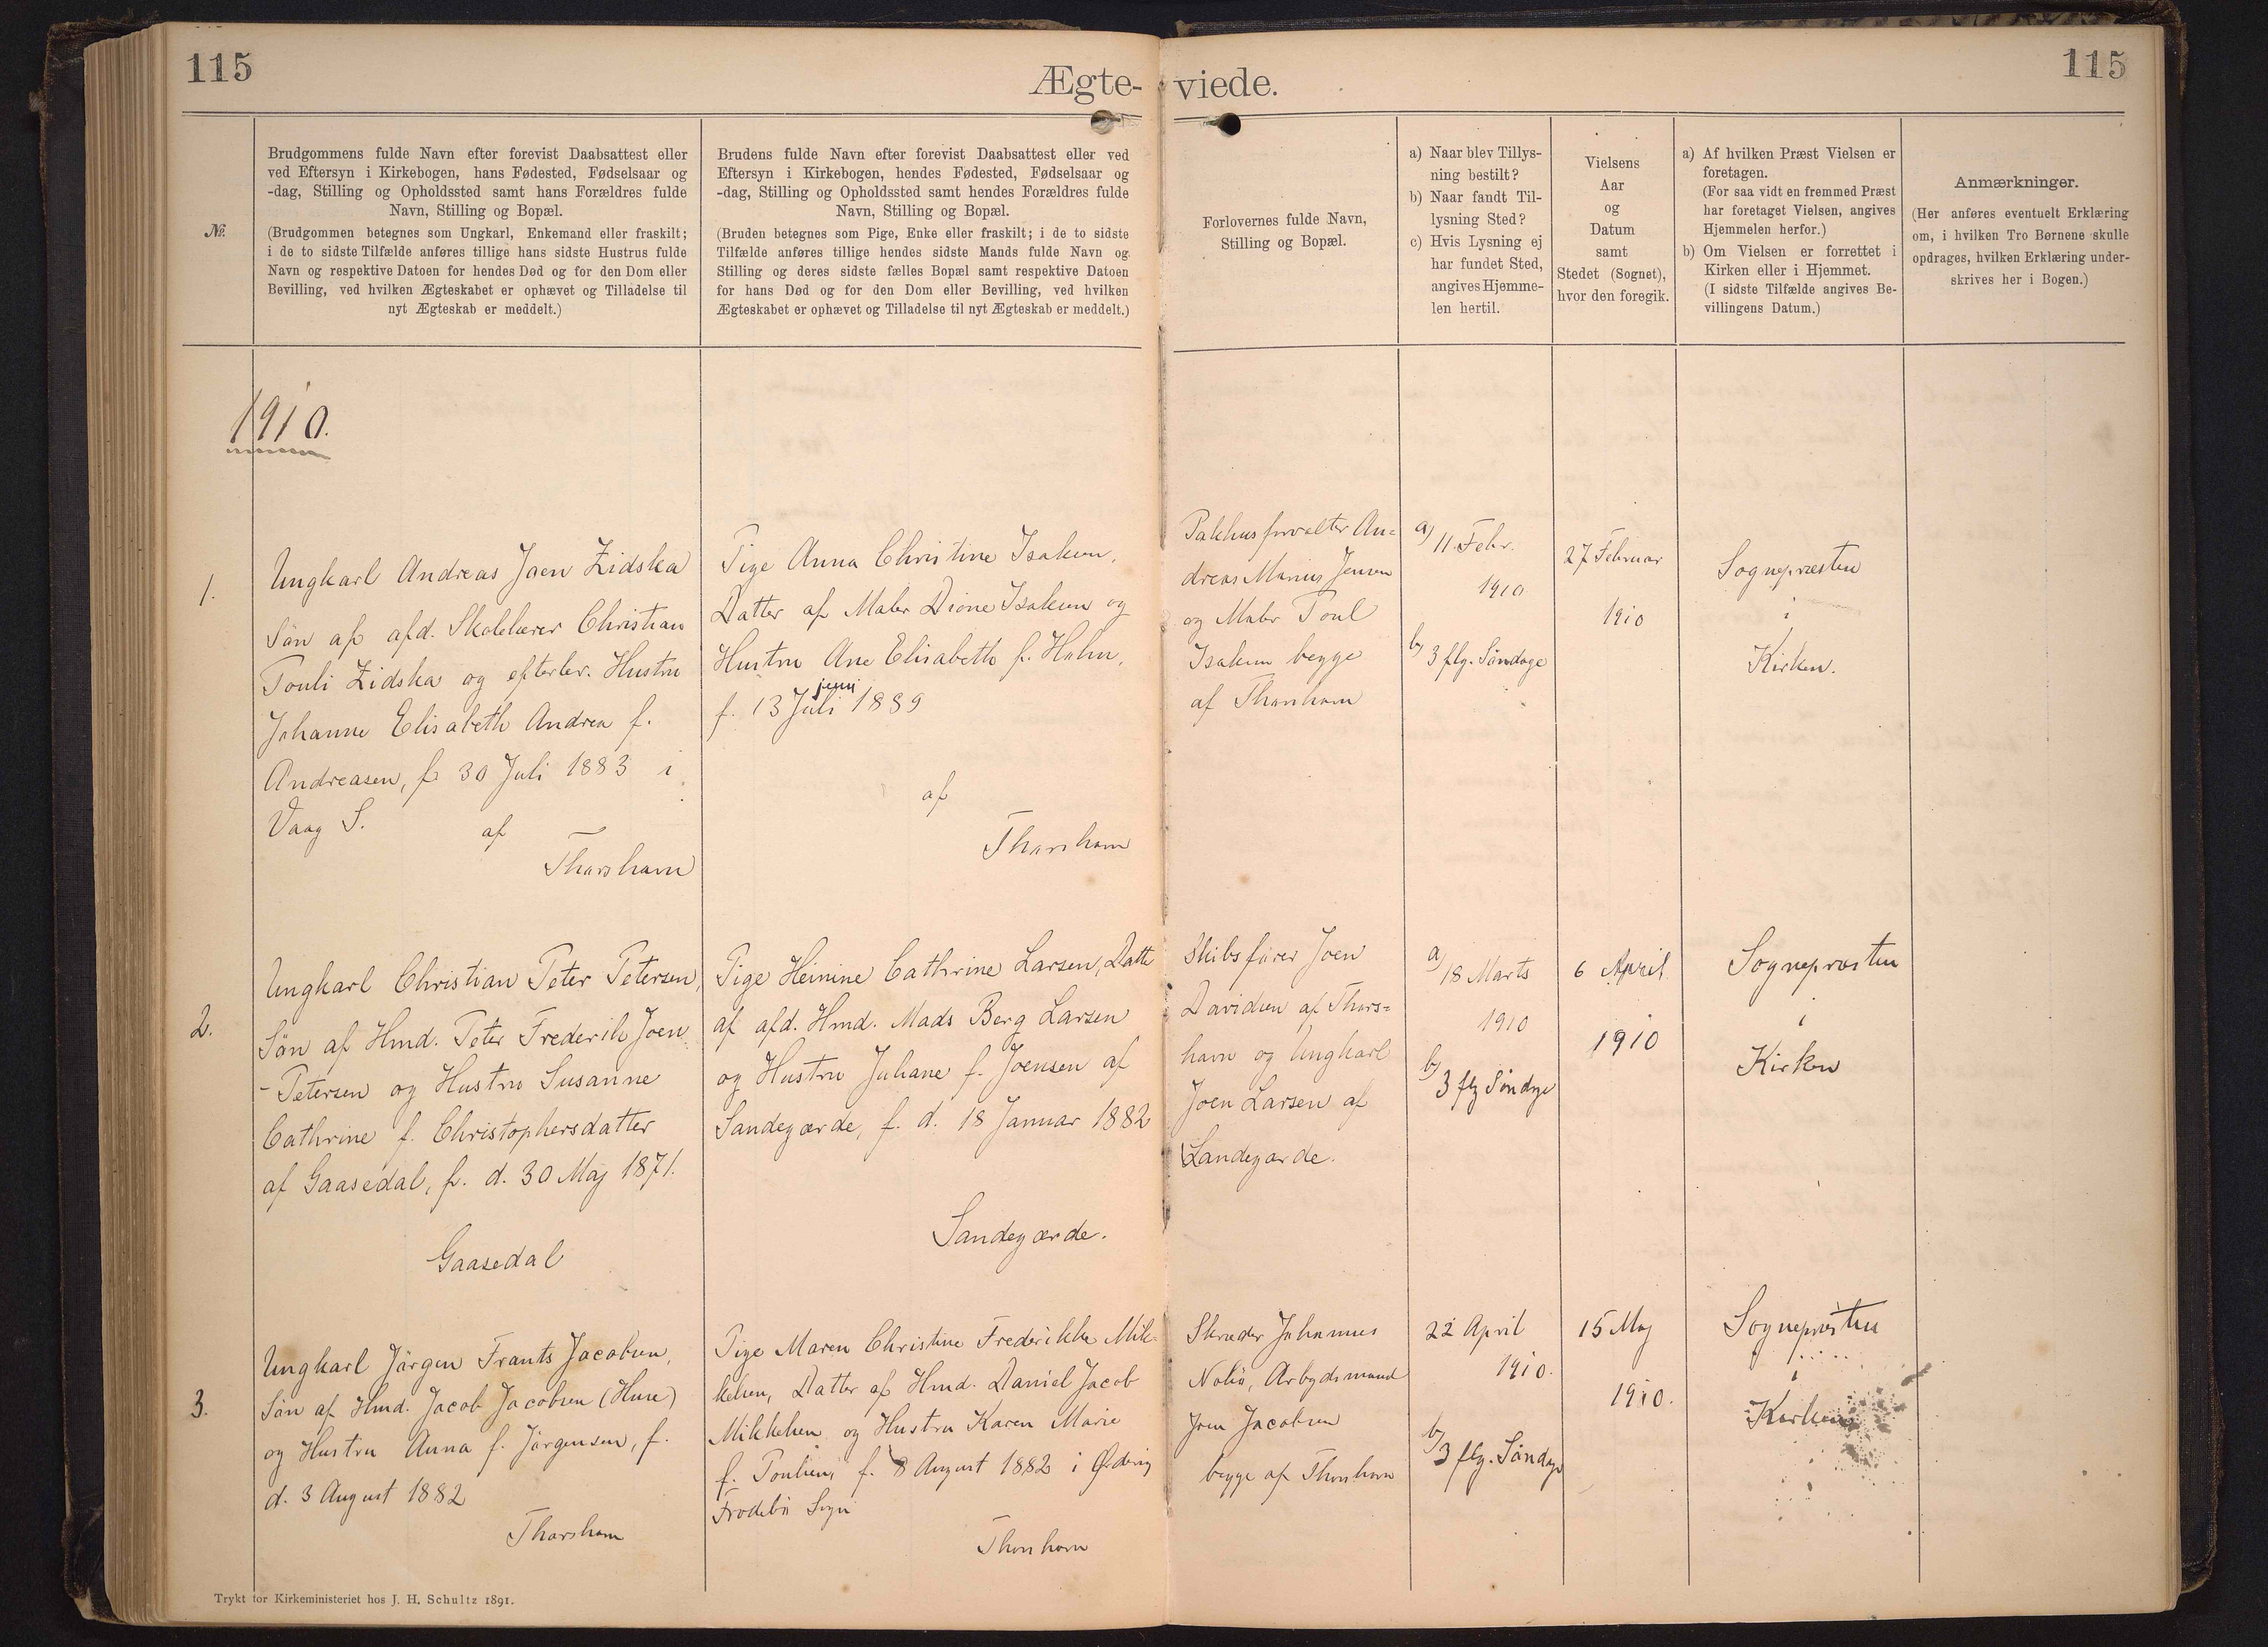 115
Ægte-viede.
115
№.
Brudgommens fulde Navn efter forevist Daabsattest eller
ved Eftersyn i Kirkebogen, hans Fødested, Fødselsaar og
-dag, Stilling og Opholdssted samt hans Forældres fulde
Navn, Stilling og Bopæl.
(Brudgommen betegnes som Ungkarl, Enkemand eller fraskilt;
i de to sidste Tilfælde anføres tillige hans sidste Hustrus fulde
Navn og respektive Datoen for hendes Død og for den Dom eller
Bevilling, ved hvilken Ægteskabet er ophævet og Tilladelse til
nyt Ægteskab er meddelt.)
Brudens fulde Navn efter forevist Daabsattest eller ved
Eftersyn i Kirkebogen, hendes Fødested, Fødselsaar og
-dag, Stilling og Opholdssted samt hendes Forældres fulde
Navn, Stilling og Bopæl.
(Bruden betegnes som Pige, Enke eller fraskilt; i de to sidste
Tilfælde anføres tillige hendes sidste Mands fulde Navn og
Stilling og deres sidste fælles Bopæl samt respektive Datoen
for hans Død og for den Dom eller Bevilling, ved hvilken
Ægteskabet er ophævet og Tilladelse til nyt Ægteskab er meddelt.)
Forlovernes fulde Navn,
Stilling og Bopæl.
a) Naar blev Tillys-
ning bestilt?
b) Naar fandt Til-
lysning Sted?
c) Hvis Lysning ej
har fundet Sted,
angives Hjemme-
len hertil.
Vielsens
Aar
og
Datum
samt
Stedet (Sognet),
hvor den foregik.
a) Af hvilken Præst Vielsen er
foretagen.
(For saa vidt en fremmed Præst
har foretaget Vielsen, angives
Hjemmelen herfor.)
b) Om Vielsen er forrettet i
Kirken eller i Hjemmet.
(I sidste Tilfælde angives Be-
villingens Datum.)
Anmærkninger.
(Her anføres eventuelt Erklæring
om, i hvilken Tro Børnene skulle
opdrages, hvilken Erklæring under-
skrives her i Bogen.)
1910.
1.
Ungkarl Andreas Joen Zidska
Sön af afd. Skolelærer Christian
Pouli Zidska og efterlev. Hustru
Johanne Elisabeth Andrea f.
Andreasen, f. 30 Juli 1883 i
Vaag S. af
Thorshavn
Pige Anna Christine Isaksen,
Datter af Maler Dione Isaksen og
Hustru Ane Elisabeth f. Holm,
juni
f. 13 Juli 1889
af
Thorshavn
Pakhusforvalter An=
dreas Marius Jensen
og Maler Poul
Isaksen begge
af Thorshavn
a) 11 Febr.
1910
b) 3 flg. Söndage
27 Februar
1910
Sognepræsten
i
Kirken.
2.
Ungkarl Christian Peter Petersen,
Sön af Hmd. Peter Frederik Joen
- Petersen og Hustru Susanne
Cathrine f. Christophersdatter
af Gaasedal, f. d. 30 Maj 1871.
Gaasedal
Pige Heinine Cathrine Larsen, Datte
af afd. Hmd. Mads Berg Larsen
og Hustru Juliane f. Joensen af
Sandegærde, f. d. 18 Januar 1882
Sandegærde.
Skibsfører Joen
Davidsen af Thors=
havn og Ungkarl
Joen Larsen af
Sandegærde.
a) 18 Marts
1910
b) 3 flg Söndge
6 April
1910
Sognepræsten
i
Kirken
3.
Ungkarl Jörgen Frants Jacobsen,
Sön af Hmd. Jacob Jacobsen (Huse)
og Hustru Anna f. Jörgensen, f.
d. 3 August 1882
Thorshavn
Pige Maren Christine Frederikke Mik-
kelsen, Datter af Hmd. Daniel Jacob
Mikkelsen og Hustru Karen Marie
f. Poulsen f. 8 August 1882 i Ørdevig
Frodebö Sogn
Thorshavn
Skræder Johannes
Nolsö, Arbejdsmand
Joen Jacobsen
begge af Thorshavn
22 April
1910.
b) 3 flg. Söndage
15 Maj
1910.
Sognepræsten
i
Kirken
Trykt for Kirkeministeriet hos J. H. Schultz 1891.